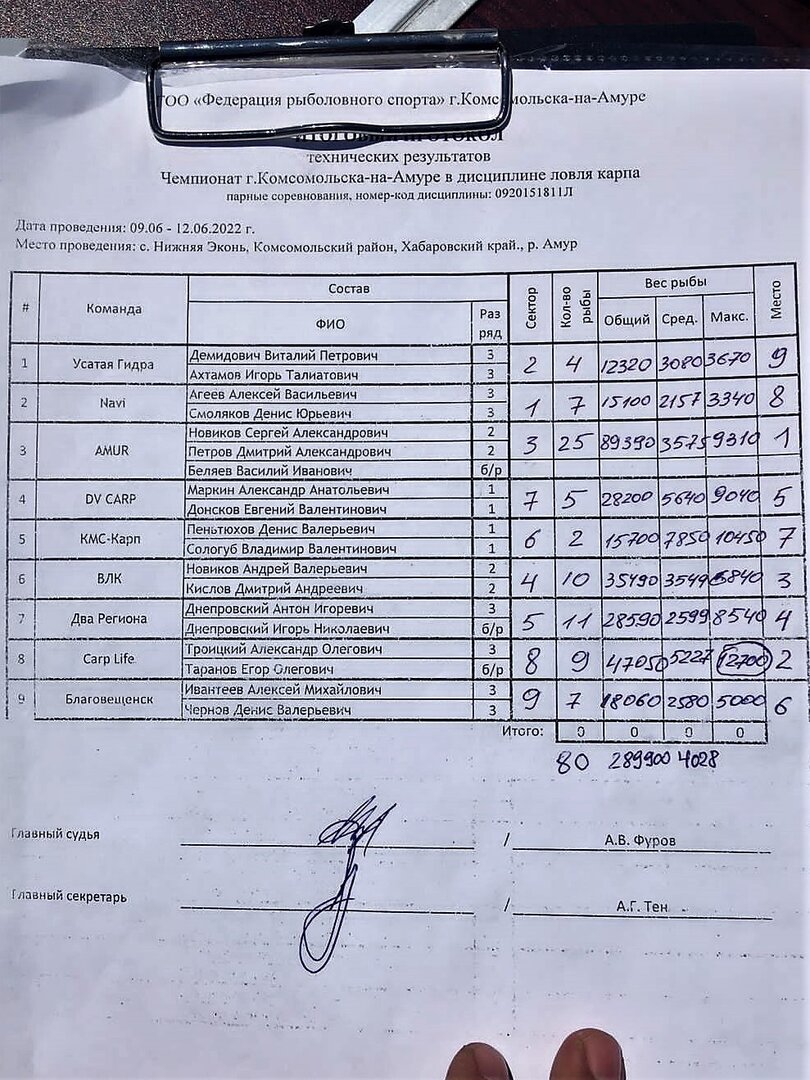 ОО «Федерация рыболовного спорта» г.Комсомольска-на-Амуре
ИТОГОВЫЙ ПРОТОКОЛ
технических результатов
Чемпионат г.Комсомольска-на-Амуре в дисциплине ловля карпа
парные соревнования, номер-код дисциплины: 0920151811Л
Дата проведения: 09.06 - 12.06.2022 г.
Место проведения: с. Нижняя Эконь, Комсомольский район, Хабаровский край., р. Амур
# Команда Состав Сектор Кол-во рыбы Вес рыбы Место
ФИО Раз ряд Общий Сред. Макс.
1 Усатая Гидра Демидович Виталий Петрович 3 2 4 12320 3080 3670 9
Ахтамов Игорь Талиатович 3
2 Navi Агеев Алексей Васильевич 3 1 7 15100 2157 3340 8
Смоляков Денис Юрьевич 3
3 AMUR Новиков Сергей Александрович 2 3 25 89390 3575 9310 1
Петров Дмитрий Александрович 2
Беляев Василий Иванович б/р
4 DV CARP Маркин Александр Анатольевич 1 7 5 28200 5640 9040 5
Донсков Евгений Валентинович 1
5 КМС-Карп Пеньтюхов Денис Валерьевич 1 6 2 15700 7850 10450 7
Сологуб Владимир Валентинович 1
6 ВЛК Новиков Андрей Валерьевич 2 4 10 35490 3549 6840 3
Кислов Дмитрий Андреевич 2
7 Два Региона Днепровский Антон Игоревич 3 5 11 28590 2599 8540 4
Днепровский Игорь Николаевич б/р
8 Carp Life Троицкий Александр Олегович 3 8 9 47050 5227 12700 2
Таранов Егор Олегович б/р
9 Благовещенск Ивантеев Алексей Михайлович 3 9 7 18060 2580 5000 6
Чернов Денис Валерьевич 3
Итого: 0 0 0 0
80 289900 4028
Главный судья / А.В. Фуров
Главный секретарь / А.Г. Тен